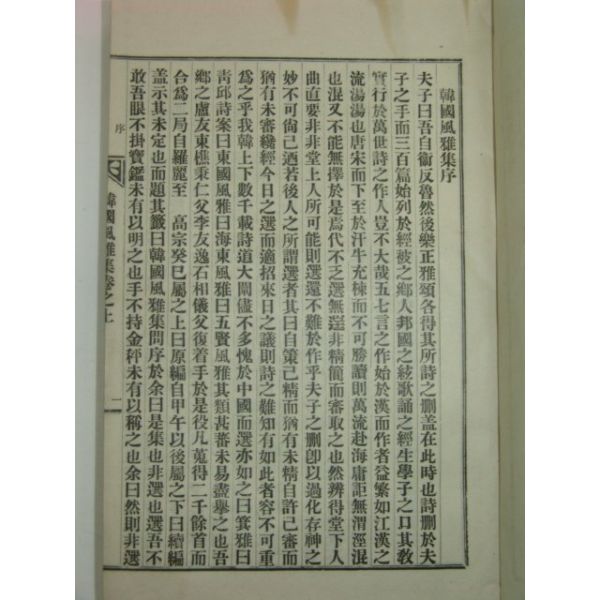 韓國風雅集序
夫子曰吾自衛反魯然後樂正雅頌各得其所詩之刪盖在此時也詩刪於夫
子之手而三百篇始列於經被之鄉人邦國之絃歌誦之經生學子之口其敎
實行於萬世詩之作人豈不大哉五七言之作始於漢而作者益繁如江漢之
流湯湯也唐宋而下至於汗牛充棟而不可勝讀則萬流赴海庸詎無渭涇混
也混又不能無擇於是爲代不乏選無選非精簡而審取之也然辨得堂下人
曲直要非非堂上人所可能則選還不難於作乎夫子之刪卽以過化存神之
妙不可尙己迺若後人之所謂選者其曰自策己精而猶有未精自許己審而
猶有未審纔經今日之選而適招來日之議則詩之難知有如此者容不可重
爲之乎我韓上下數千載詩道大闡儘不多愧於中國而選亦如之曰箕雅曰
靑邱詩案曰東國風雅曰海東風雅曰五賢風雅其類甚蕃未易盡擧之也吾
鄉之盧友東樵秉仁父李友逸石相儀父復着手於是役凡蒐得二千餘首而
合爲二局自羅麗至 高宗癸巳屬之上曰原編自甲午以後屬之下曰續編
盖示其未定也而題其籤曰韓國風雅集問序於余曰是集也非選也選吾不
敢吾眼不掛寶鑑未有以明之也手不持金秤未有以稱之也余曰然則非選
序
韓國風雅集卷之上
二